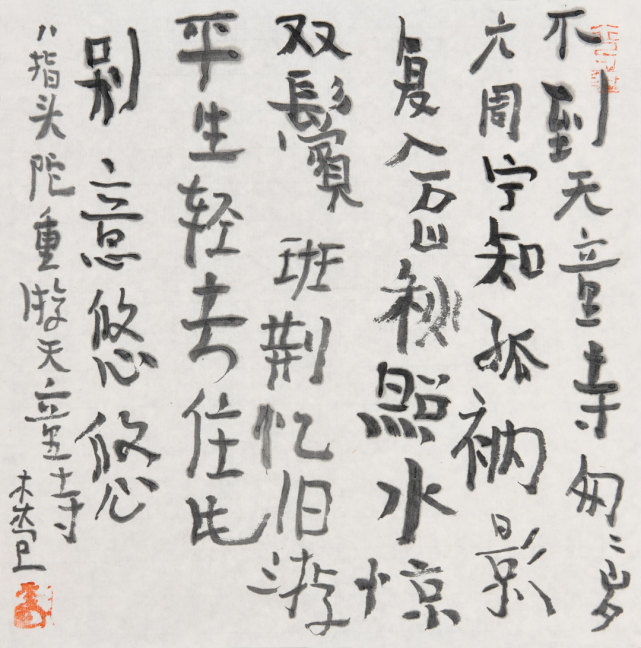 不到天童寺匆〻岁
六周宁知孤衲影
复入万山秋照水惊
双鬓班荆忆旧游
平生轻去住此
别意悠悠
八指头陀重游天童寺